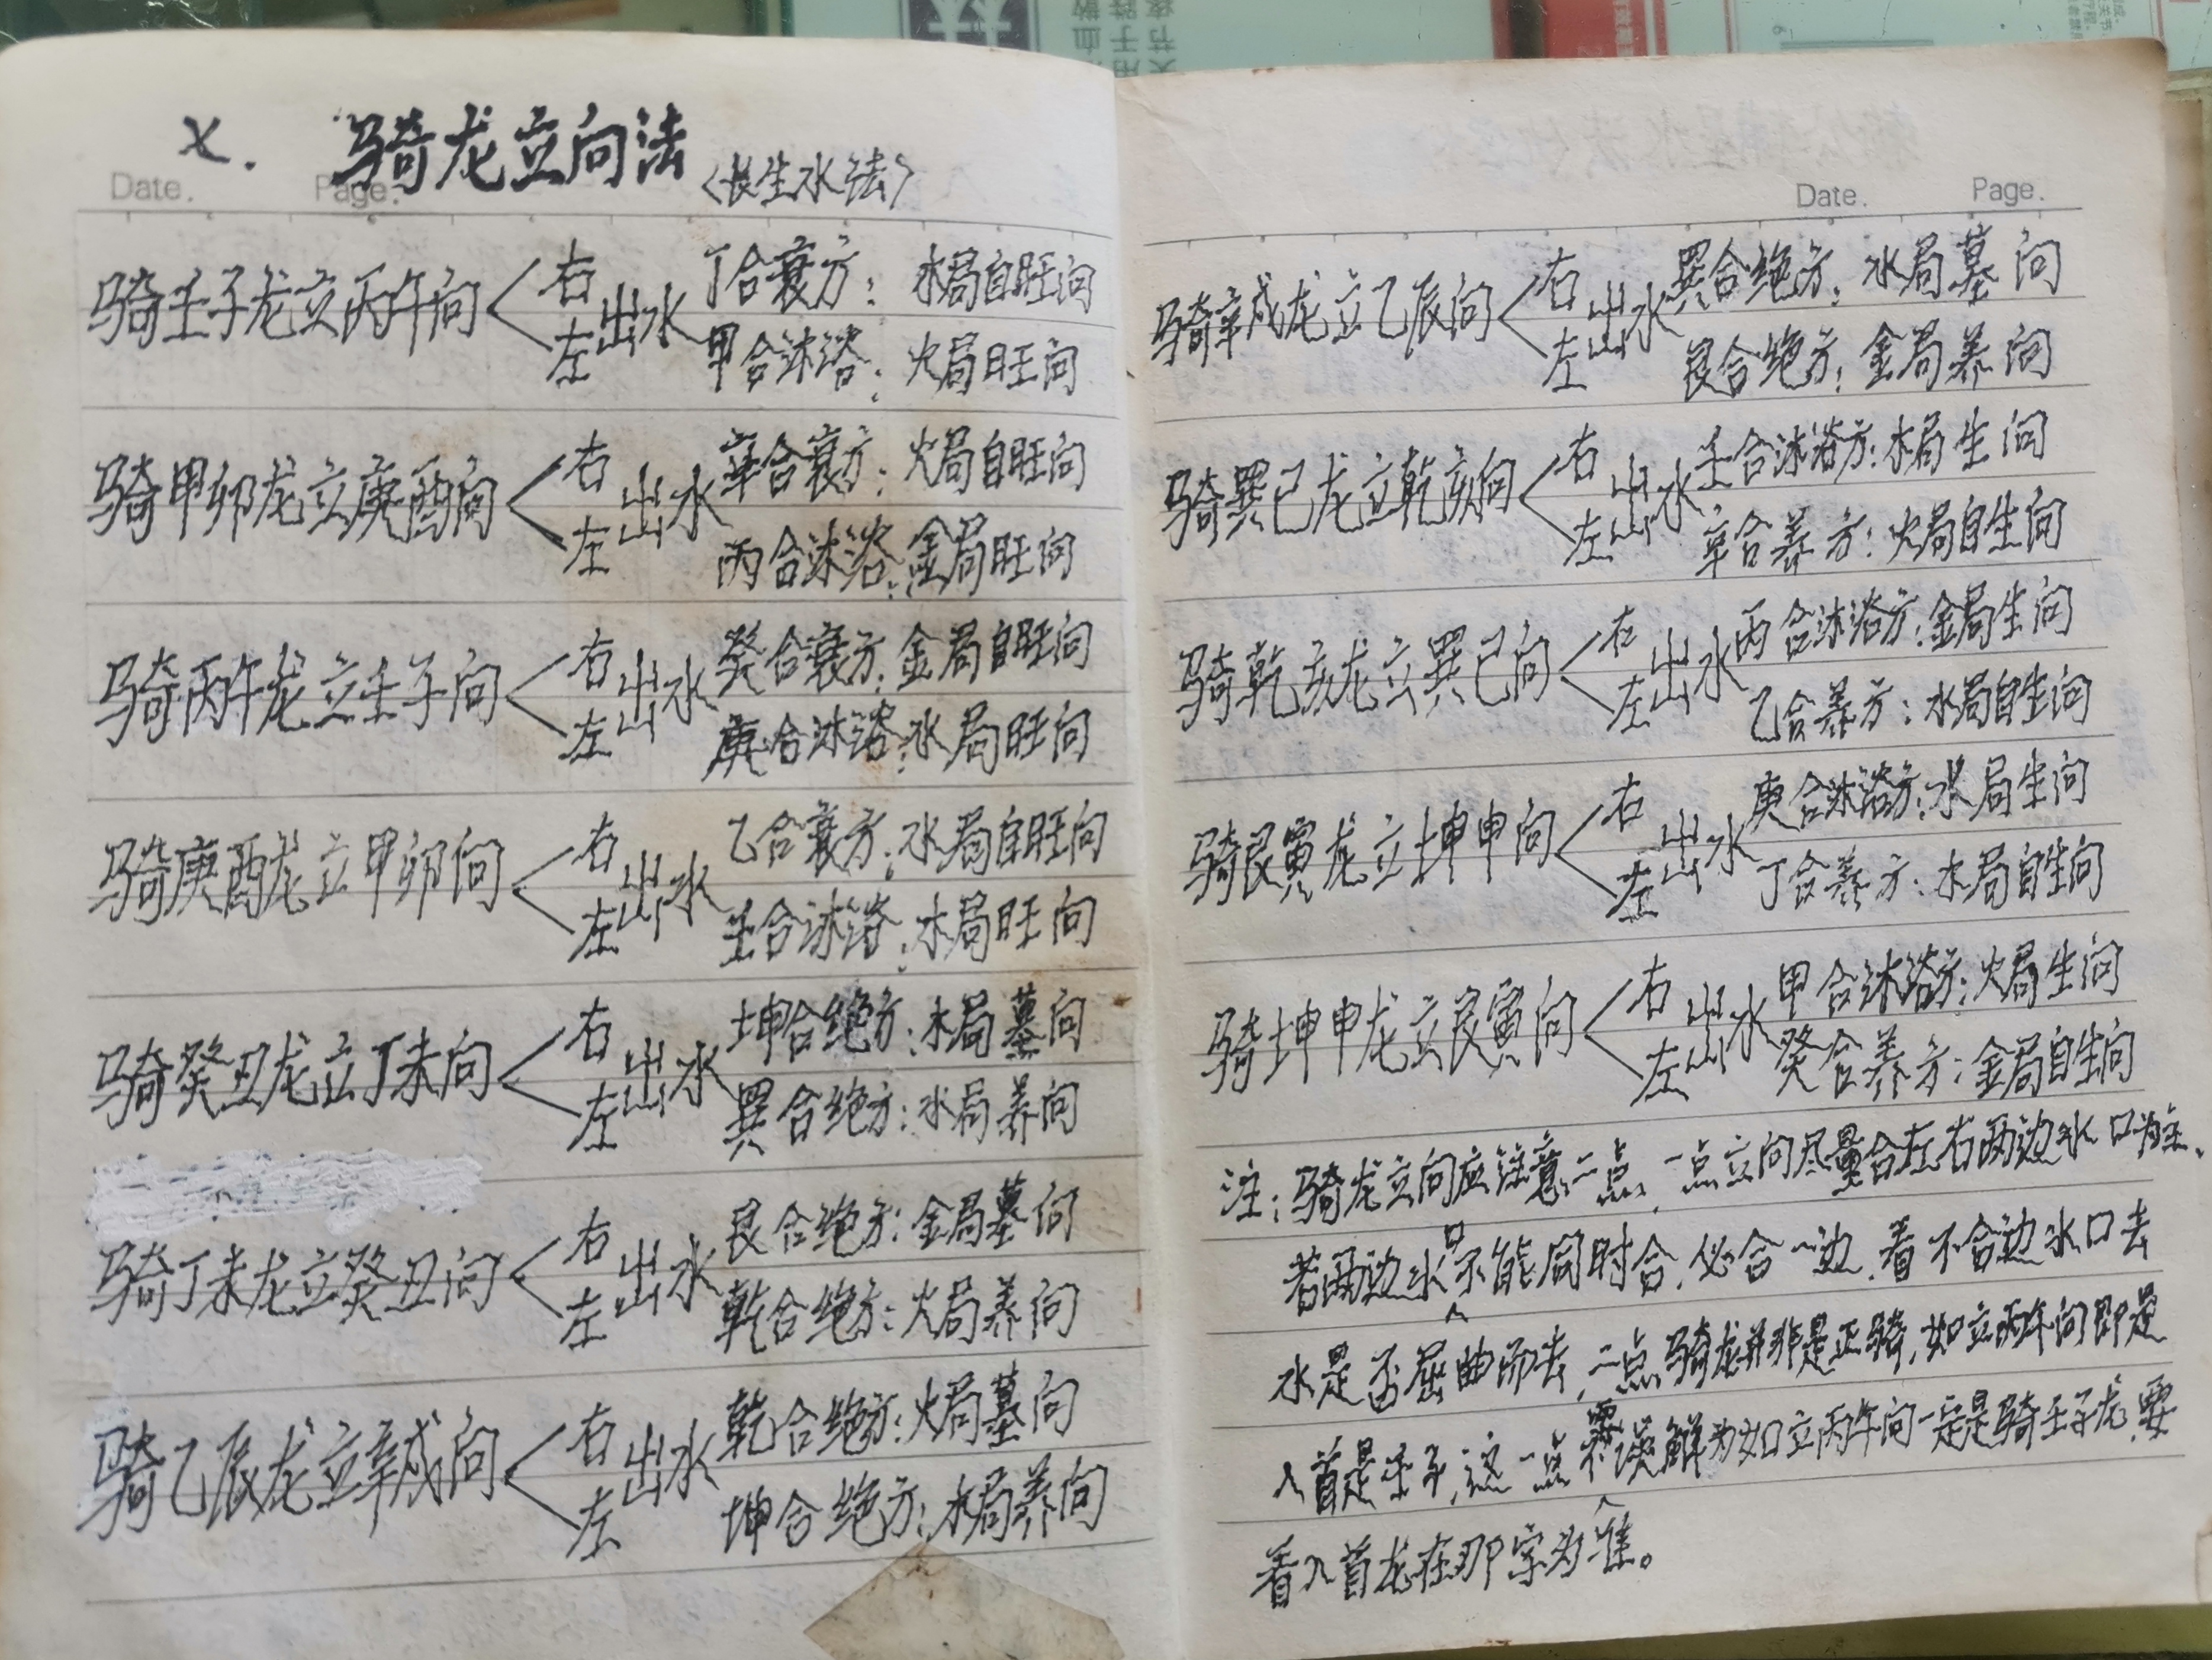 X. 骑龙立向法〈长生水法〉
Date. Page.
骑壬子龙立丙午向 右 左 出水 丁合衰方:水局自旺向
甲合沐浴:火局旺向
骑甲卯龙立庚酉向 右 左 出水 辛合衰方:火局自旺向
丙合沐浴:金局旺向
骑丙午龙立壬子向 右 左 出水 癸合衰方:金局自旺向
庚合沐浴:水局旺向
骑庚酉龙立甲卯向 右 左 出水 乙合衰方:水局自旺向
壬合沐浴:水局旺向
骑癸丑龙立丁未向 右 左 出水 坤合绝方:木局墓向
巽合绝方:水局养向
骑丁未龙立癸丑向 右 左 出水 艮合绝方:金局墓向
乾合绝方:火局养向
骑乙辰龙立辛戍向 右 左 出水 乾合绝方:火局墓向
坤合绝方:水局养向
Date. Page.
骑辛戍龙立乙辰向 右 左 出水 巽合绝方:水局墓向
艮合绝方:金局养向
骑巽已龙立乾亥向 右 左 出水 壬合沐浴方:木局生向
辛合养方:火局自生向
骑乾亥龙立巽已向 右 左 出水 丙合沐浴方:金局生向
乙合养方:水局自生向
骑艮寅龙立坤申向 右 左 出水 庚合沐浴方:水局生向
丁合养方:木局自生向
骑坤申龙立艮寅向 右 左 出水 甲合沐浴方:火局生向
癸合养方:金局自生向
注:骑龙立向应注意二点,一点立向尽量合左右两边水口为主、
若两边水口不能同时合,必合一边,看不合边水口去
水是否屈曲而去,二点骑龙并非是正骑,如立丙午向即是
入首是壬子,这一点不要误解为如立丙午向一定是骑壬子龙,要
看入首龙在那字为准。